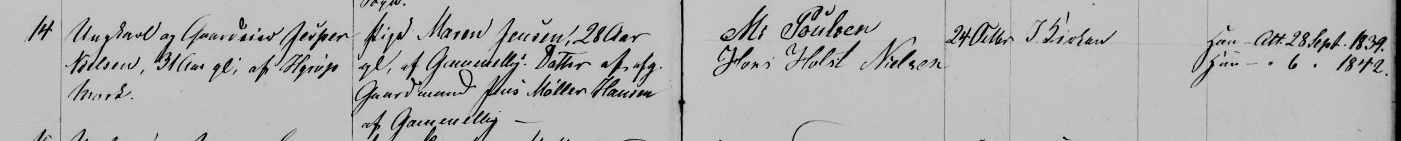 14 Ungkarl og Gaardeier Jesper
Nielsen, 31 Aar gl, af
Mark.
Pige Maren Jensen, 28 Aar
gl, af Gammelby. Datter af afg.
Gaardmand Jens Møller Hansen
af Gammelby —
Ms Poulsen
Hans Holst Nielsen
24 Octbr I Kirken
Han — Att. 28 Sept. 1839.
Hun — " 6 " 1842.